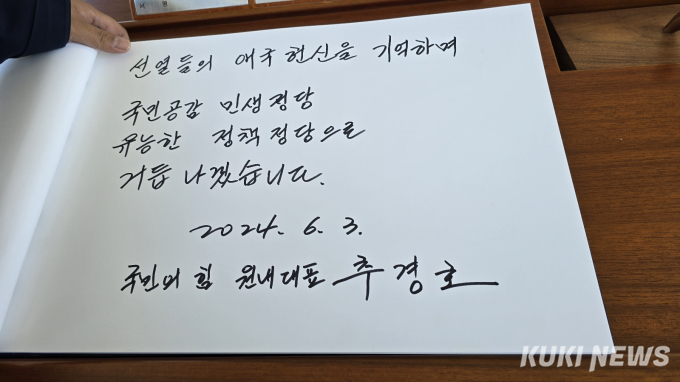 선열들의 애국 헌신을 기억하며
국민공감 민생정당
유능한 정책정당으로
거듭 나겠습니다.
2024. 6. 3.
국민의힘 원내대표 추경호
KUKI NEWS